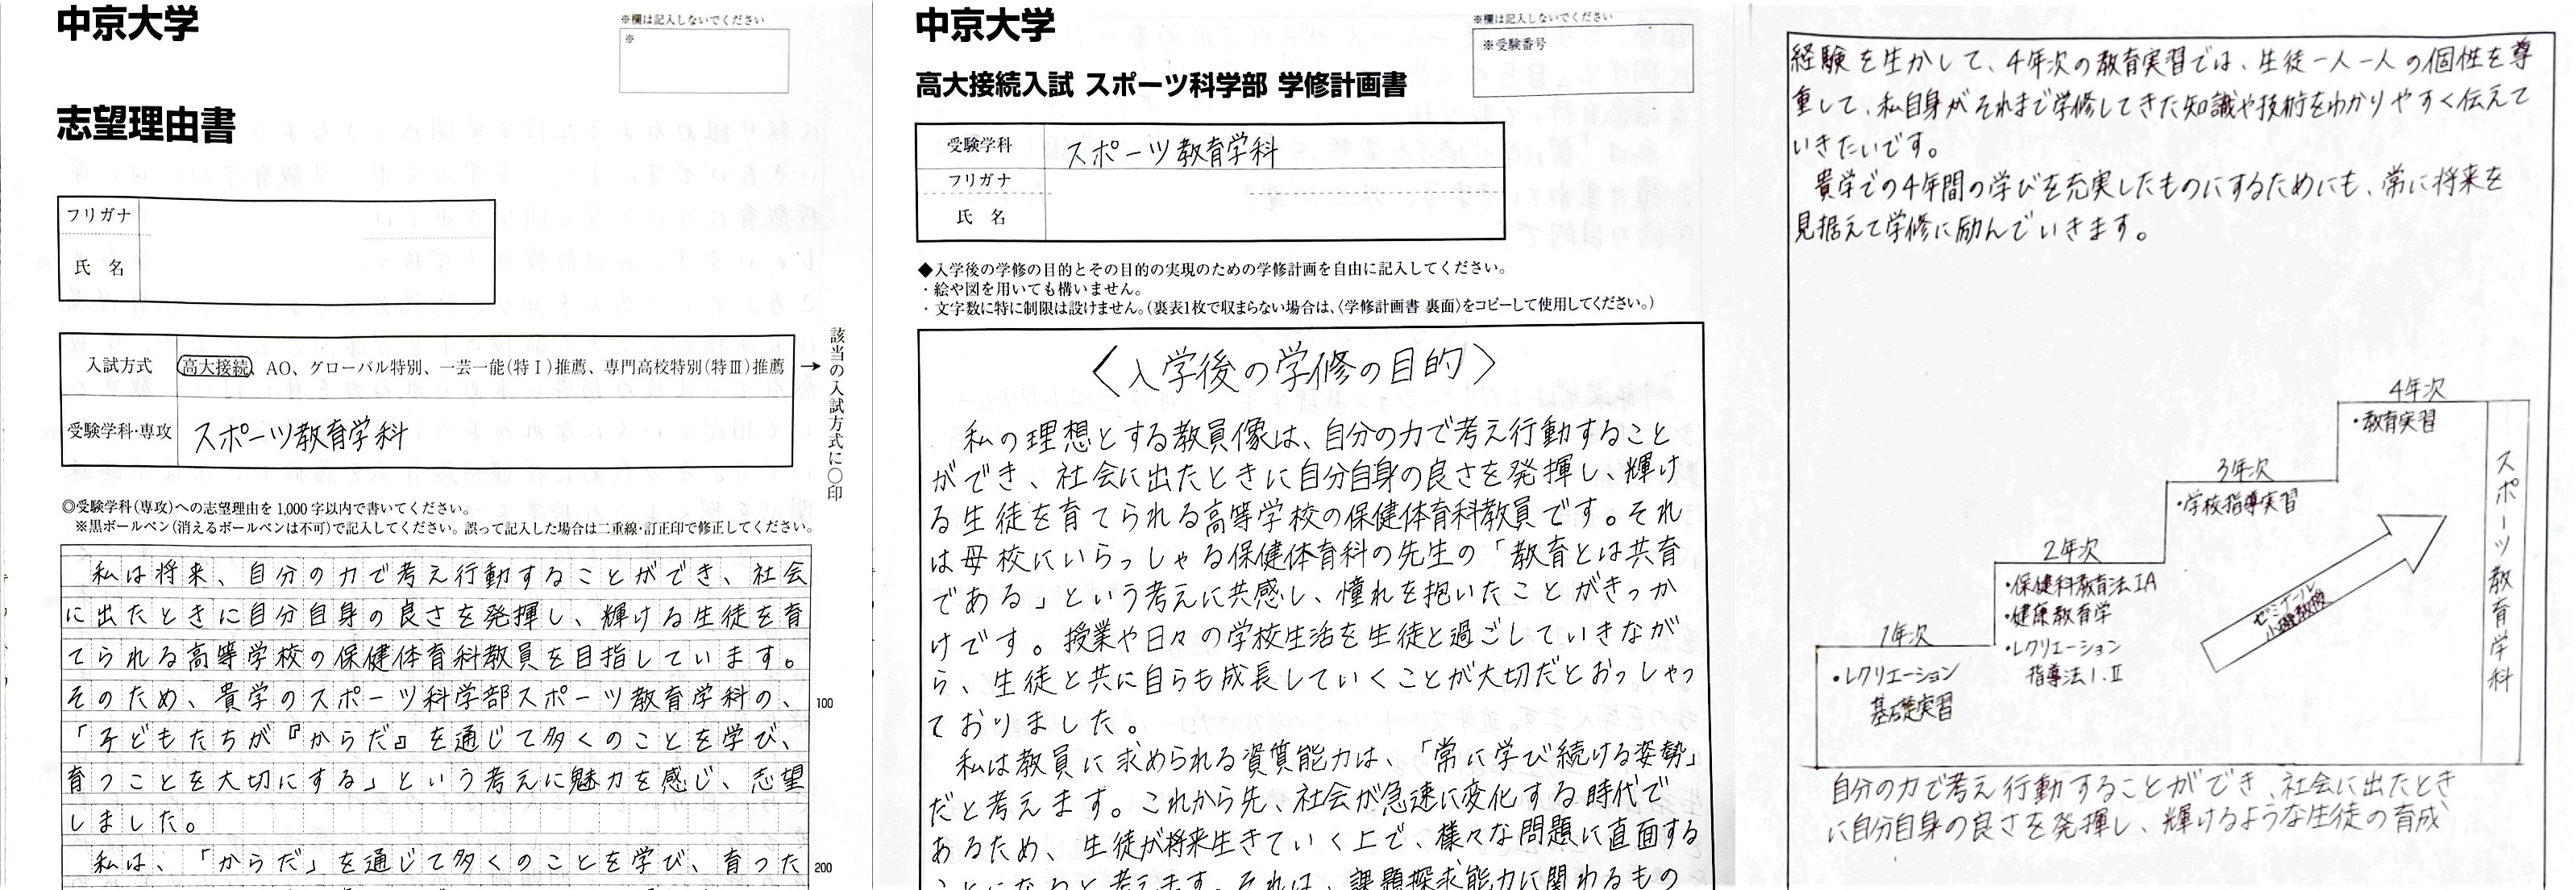 中京大学
※欄は記入しないでください
※
志望理由書
フリガナ
氏 名
入試方式
高大接続、AO、グローバル特別、一芸一能(特Ⅰ)推薦、専門高校特別(特Ⅲ)推薦
→
該当の入試方式に○印
受験学科・専攻
スポーツ教育学科
◎受験学科(専攻)への志望理由を1,000字以内で書いてください。
※黒ボールペン(消えるボールペンは不可)で記入してください。誤って記入した場合は二重線・訂正印で修正してください。
私は将来、自分の力で考え行動することができ、社会
に出たときに自分自身の良さを発揮し、輝ける生徒を育
てられる高等学校の保健体育科教員を目指しています。
そのため、貴学のスポーツ科学部スポーツ教育学科の、
100
「子どもたちが『からだ』を通じて多くのことを学び、
育つことを大切にする」という考えに魅力を感じ、志望
しました。
私は、「からだ」を通じて多くのことを学び、育った
200
中京大学
※欄は記入しないでください
※受験番号
高大接続入試 スポーツ科学部 学修計画書
受験学科
スポーツ教育学科
フリガナ
氏 名
◆入学後の学修の目的とその目的の実現のための学修計画を自由に記入してください。
・絵や図を用いても構いません。
・文字数に特に制限は設けません。(裏表1枚で収まらない場合は、〈学修計画書 裏面〉をコピーして使用してください。)
〈入学後の学修の目的〉
私の理想とする教員像は、自分の力で考え行動すること
ができ、社会に出たときに自分自身の良さを発揮し、輝け
る生徒を育てられる高等学校の保健体育科教員です。それ
は母校にいらっしゃる保健体育科の先生の「教育とは共育
である」という考えに共感し、憧れを抱いたことがきっか
けです。授業や日々の学校生活を生徒と過ごしていきなが
ら、生徒と共に自らも成長していくことが大切だとおっしゃっ
ておりました。
私は教員に求められる資質能力は、「常に学び続ける姿勢」
だと考えます。これから先、社会が急速に変化する時代で
あるため、生徒が将来生きていく上で、様々な問題に直面する
ことになると考えます。それは、課題探求能力に関わるもの
経験を生かして、4年次の教育実習では、生徒一人一人の個性を尊
重して、私自身がそれまで学修してきた知識や技術をわかりやすく伝えて
いきたいです。
貴学での4年間の学びを充実したものにするためにも、常に将来を
見据えて学修に励んでいきます。
4年次
・教育実習
3年次
・学校指導実習
2年次
・保健科教育法ⅠA
・健康教育学
・レクリエーション
指導法Ⅰ.Ⅱ
1年次
・レクリエーション
基礎実習
ゼミナール
小磯教授
スポーツ教育学科
自分の力で考え行動することができ、社会に出たとき
に自分自身の良さを発揮し、輝けるような生徒の育成